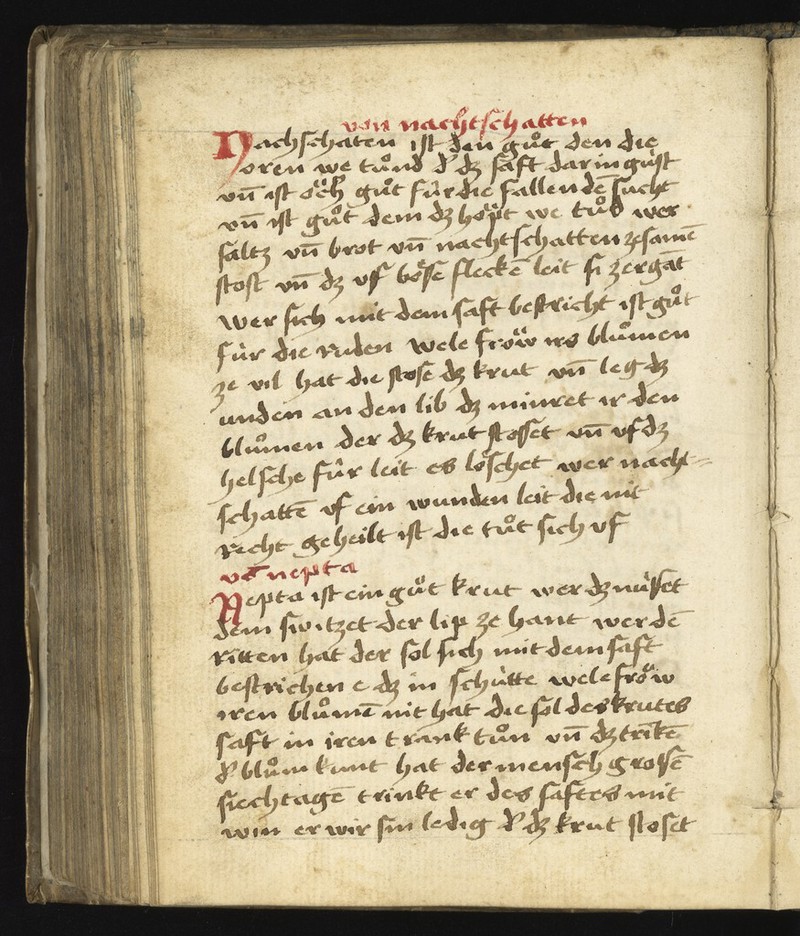 von nachtschatten
Nachschaten ist den guͦt den die
oren we tuͦnd d͛ dz saft dar in guͥst
vn̄ ist oͤch guͦt fuͥr die fallendē sucht
vn̄ ist guͦt dem dz hoͤpt we tuͦt wer
saltz vn̄ brot vn̄ nachtschatten zesamē
stost vn̄ dz vff boͤse fleckē leit si zergāt
wer sich mit dem saft bestricht ist guͦt
fuͥr die ruden wele froͧw irs bluͦmen
ze vil hat die stose dz krut vn̄ leg dz
unden an den lib dz minret ir den
bluͦmen der dz krut stosset vn̄ vf dz
helsche fuͥr leit es loͤschet wer nacht-
schattē vf ein wunden leit die nit
recht geheilt ist die tuͦt sich vf
vō nepta
Nepta ist ein guͦt krut wer dz nuͥsset
dem switzet der lip ze hant wer dē
ritten hat der sol sich mit dem saft
bestrichen e dz in schuͥtte wele froͧw
iren bluͦmē nit hat die sol des krutes
saft in iren trank tuͦn vn̄ dz trīkē
d͛ bluͦm kunt hat der mensch grossē
siechtagē trinkt er des saftes mit
win er wir sin ledig d͛ dz krut stoset